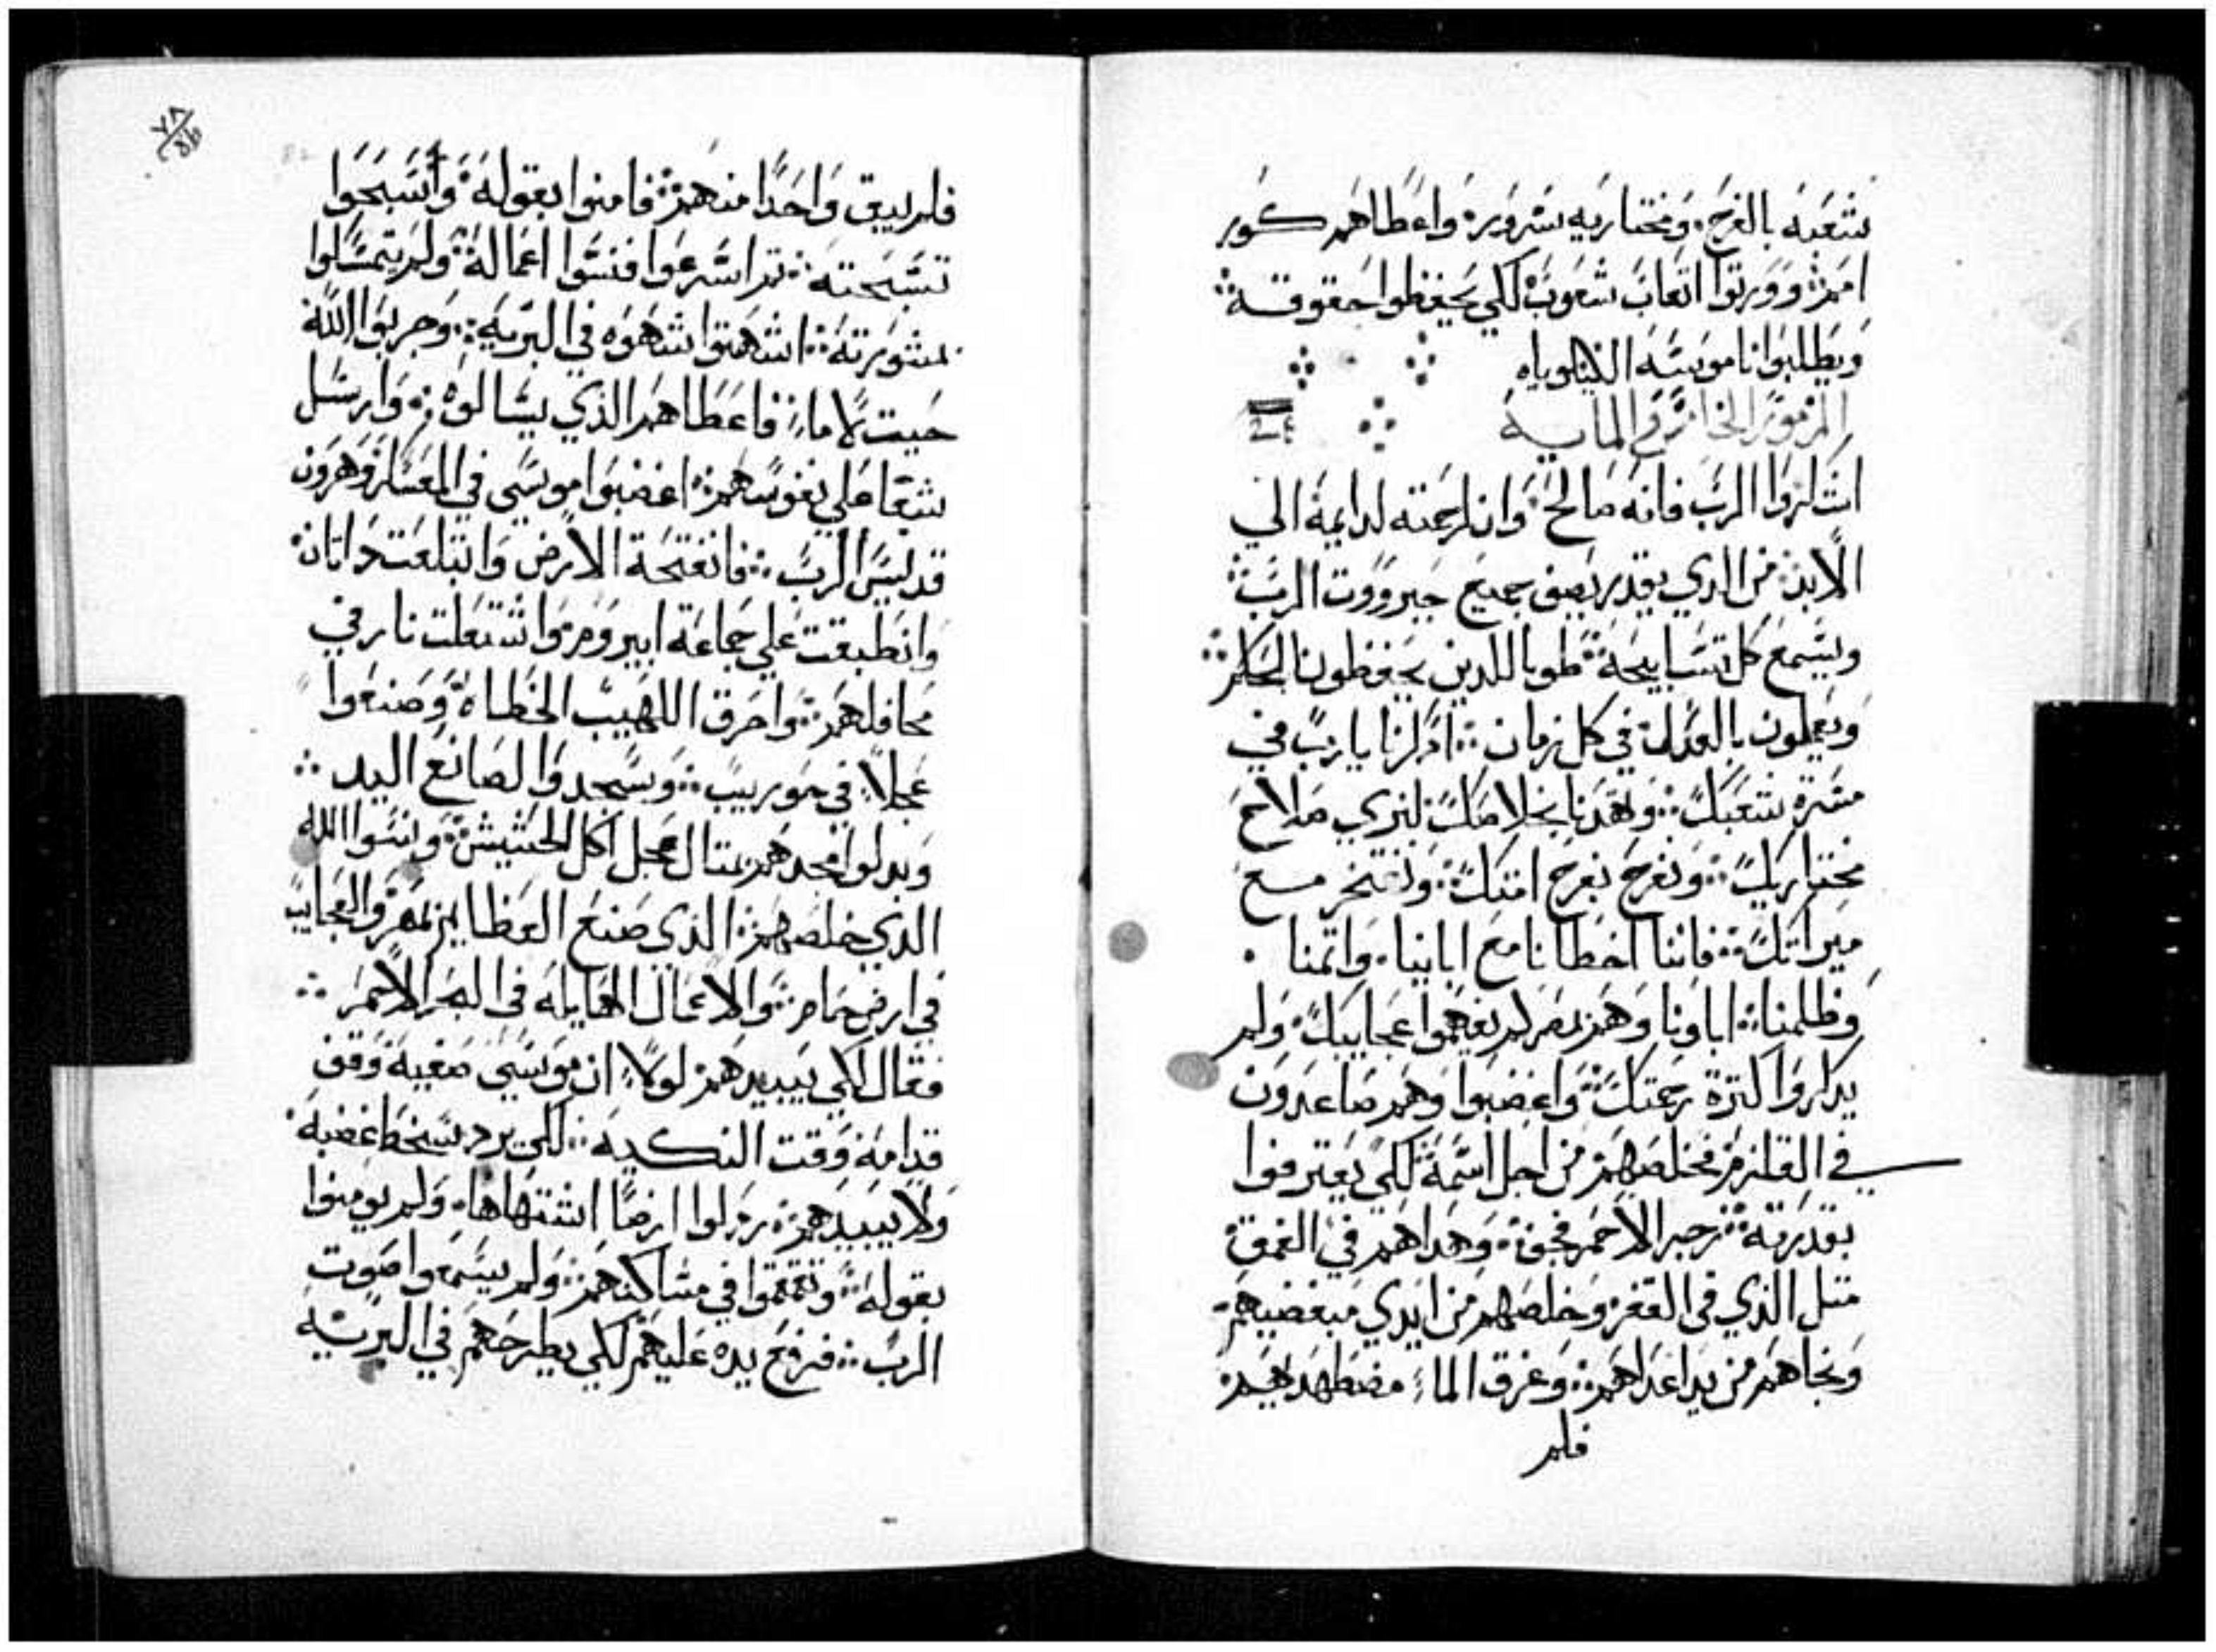 شعبه بالفرح۰ ومختاريه بسرور۰ واعطاهم كور
امم۰ وورتوا اتعاب شعوب لكي يحفظوا حقوقه
ويطلبوا ناموسه الليلوياه
المزمور الخامس و المايه
اشكروا الرب فانه صالح وان رحمته لدايمة الي
الابد۰ من الدي يقدر يصف جميع جبرووت الرب
ويسمع كل تسابيحه۰ طوبا للدين يحفظون الحكم
ويعملون بالعدل في كل زمان۰ ادكرنا يارب في
مسرة شعبك۰ وتعهدنا بخلاصك لنري صلاح
مختاريك۰ ونفرح بفرح امتك۰ ونفتخر مع
ميراتك۰ فاننا اخطانا مع ابايينا۰ واتمنا
وظلمنا۰ اباونا وهم بمصر لم يفهموا عجايبك۰ ولم
يدكروا كترة رحمتك۰ واغضبوا وهم صاعدون
في القلزم۰ فخلصهم من اجل اسمة لكي يعترفوا
بقدرته۰ زجر الاحمر فجف۰ وهداهم في الغمق
متل الذي في القفر۰ وخلصهم من ايدي مبغضيهم
ونجاهم من يد اعداهم۰ وغرق الماء مضطهديهم
فلم
٧٨
فلم يبق واحدا منهم۰ فامنوا بقوله۰ واسبحوا
تسبحته۰ تم اسرعوا فنسوا اعماله۰ ولم يتمسكوا
بمشورته۰ اشتهوا شهوه في البريه۰ وجربوا الله
حيت لا ماء۰ فاعطاهم الذي يسالوه۰ وارسل
شبعا علي نفوسهم۰ اغضبوا موسي في المعسكر وهرون
قديس الرب۰ فانفتحة الارض وابتلعت داتان
وانطبقت علي جماعة ابيروم۰ واشتعلت نار في
محافلهم۰ واحرق اللهيب الخطاه۰ وصنعوا
عجلا في حوريب۰ وسجدوا لصانع اليد
وبدلوا مجدهم بمتال عجل اكل الحشيش۰ ونسوا الله
الدي خلصهم۰ الذي صنع العظايم بمصر والعجايب
في ارض حام۰ والاعمال الهايله في البحر الاحمر
فقال لكي يبيدهم۰ لولا ان موسي صفيه وقف
قدامه وقت النكديه۰ لكي يرد سخط غضبه
ولا يبيدهم۰ ردلوا ارضا اشتهاها۰ ولم يومنوا
بقوله۰ وتقمقموا في مساكنهم۰ ولم يسمعوا صوت
الرب۰ فرفع يده عليهم لكي يطرحهم في البريه